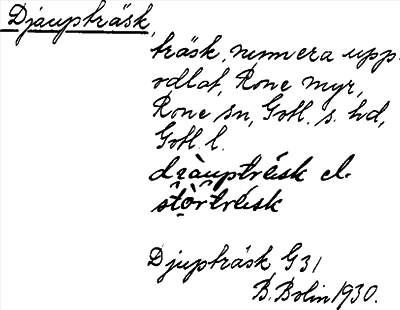 Djaupträsk,
träsk, numera upp-
odlat, Rone myr,
Rone sn, Gotl. s. hd,
Gotl. l.
djàuptrésk el.
stòrtrésk
Djupträsk G31
B. Bolin 1930.